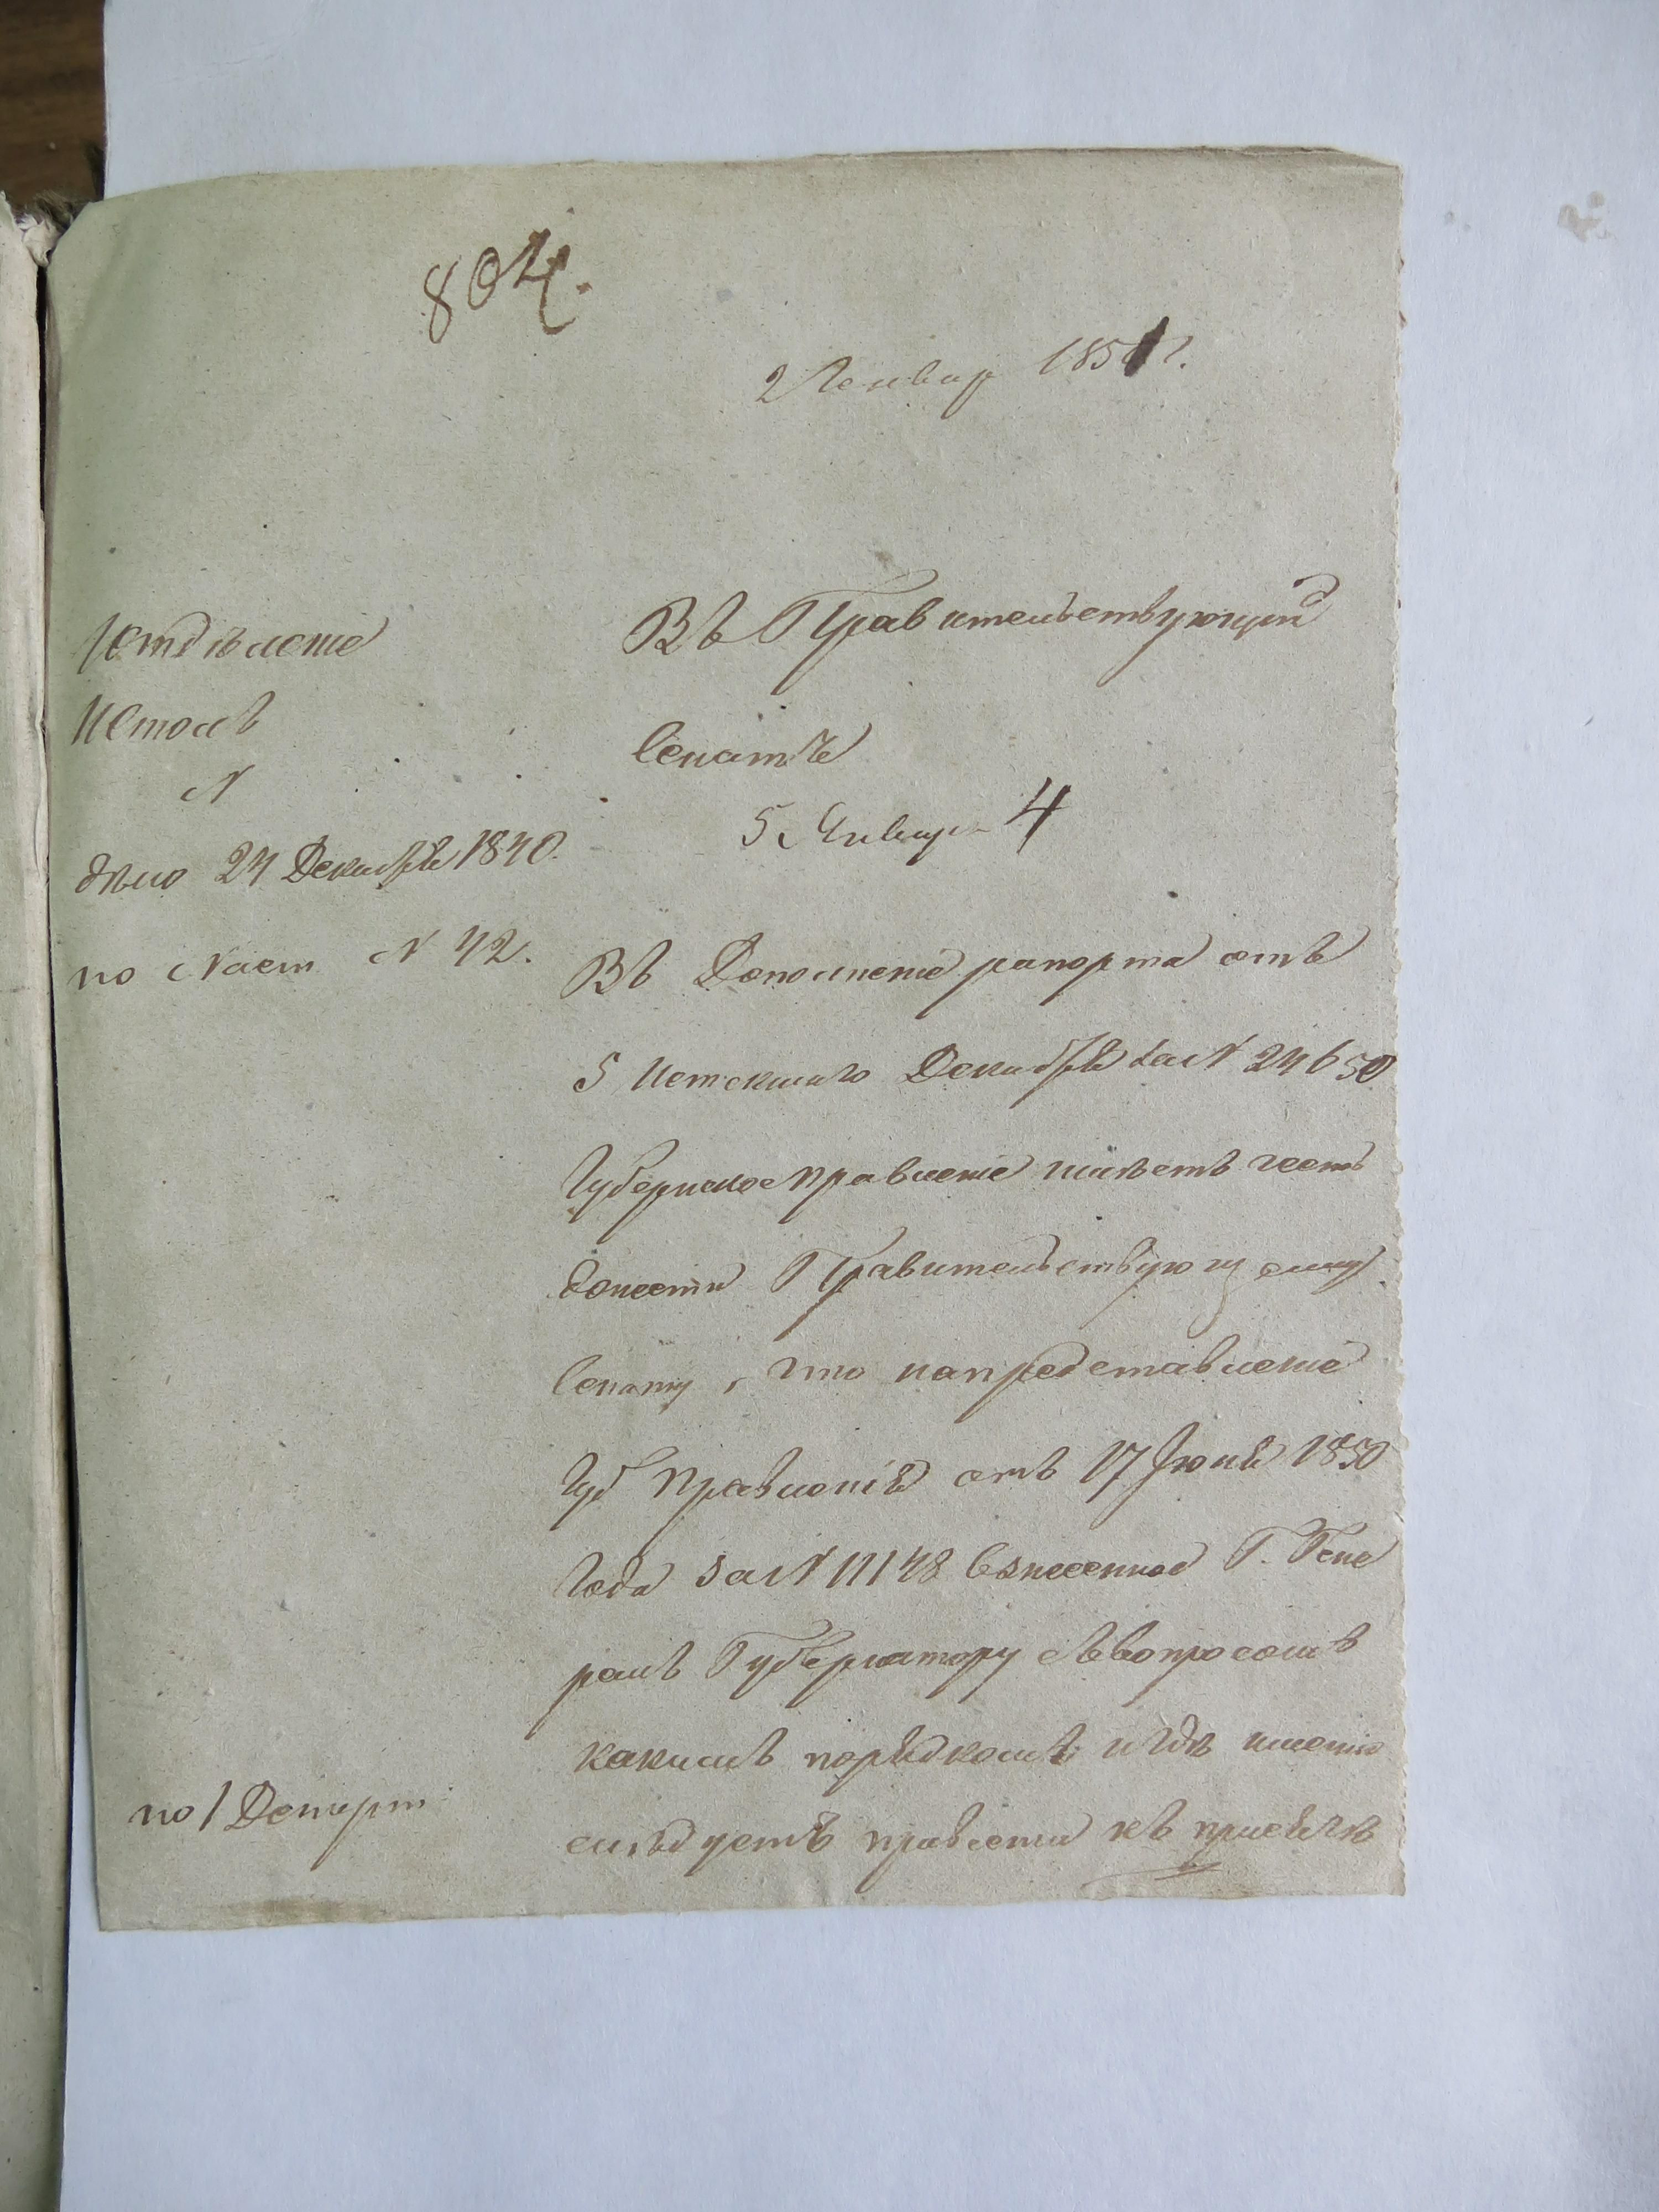 804.
2 Генвар 1851 г.
1 Отдѣление
II Столъ
N
дѣло 24 Декабря 1840.
по Наст N 42.
Въ Правительствующій
Сенатъ
5 Январ 4
Въ Дополнение рапорта отъ
5 Истекшаго Декабря за N 24650
Губернское правление имѣетъ честь
донести Правительствующему
Сенату, что на представление
Губ Правленія отъ 17 Июня 1850
Года за N 11148 взнесенное Г. Гене
ралъ Губернатору съ вопросомъ
какимъ порядкомъ и гдѣ именно
слѣдуетъ привести къ присягѣ
по 1 Департ